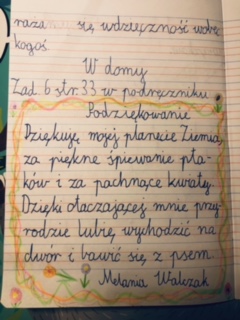 raża się wdzięczność wobec
kogoś.
W domu
Zad. 6 str. 33 w podręczniku
Podziękowanie
Dziękuję mojej planecie Ziemia,
za piękne śpiewanie pta-
ków i za pachnące kwiaty.
Dzięki otaczającej mnie przy-
rodzie lubię wychodzić na
dwór i bawić się z psem.
Melania Walczak